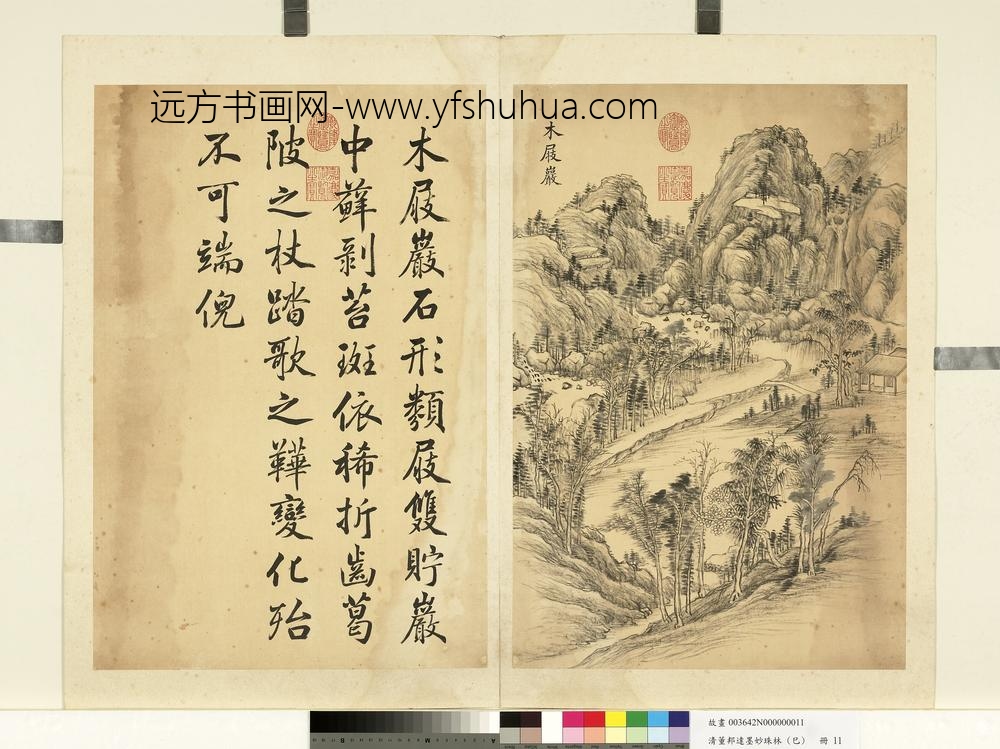 远方书画网-www.yfshuhua.com
木屐巖
木屐巖石形類屐雙貯巖
中蘚剥苔斑依稀折齒葛
陂之杖踏歌之鞾變化殆
不可端倪
故畫 003642N000000011
清董邦達墨妙珠林（巳） 冊 11